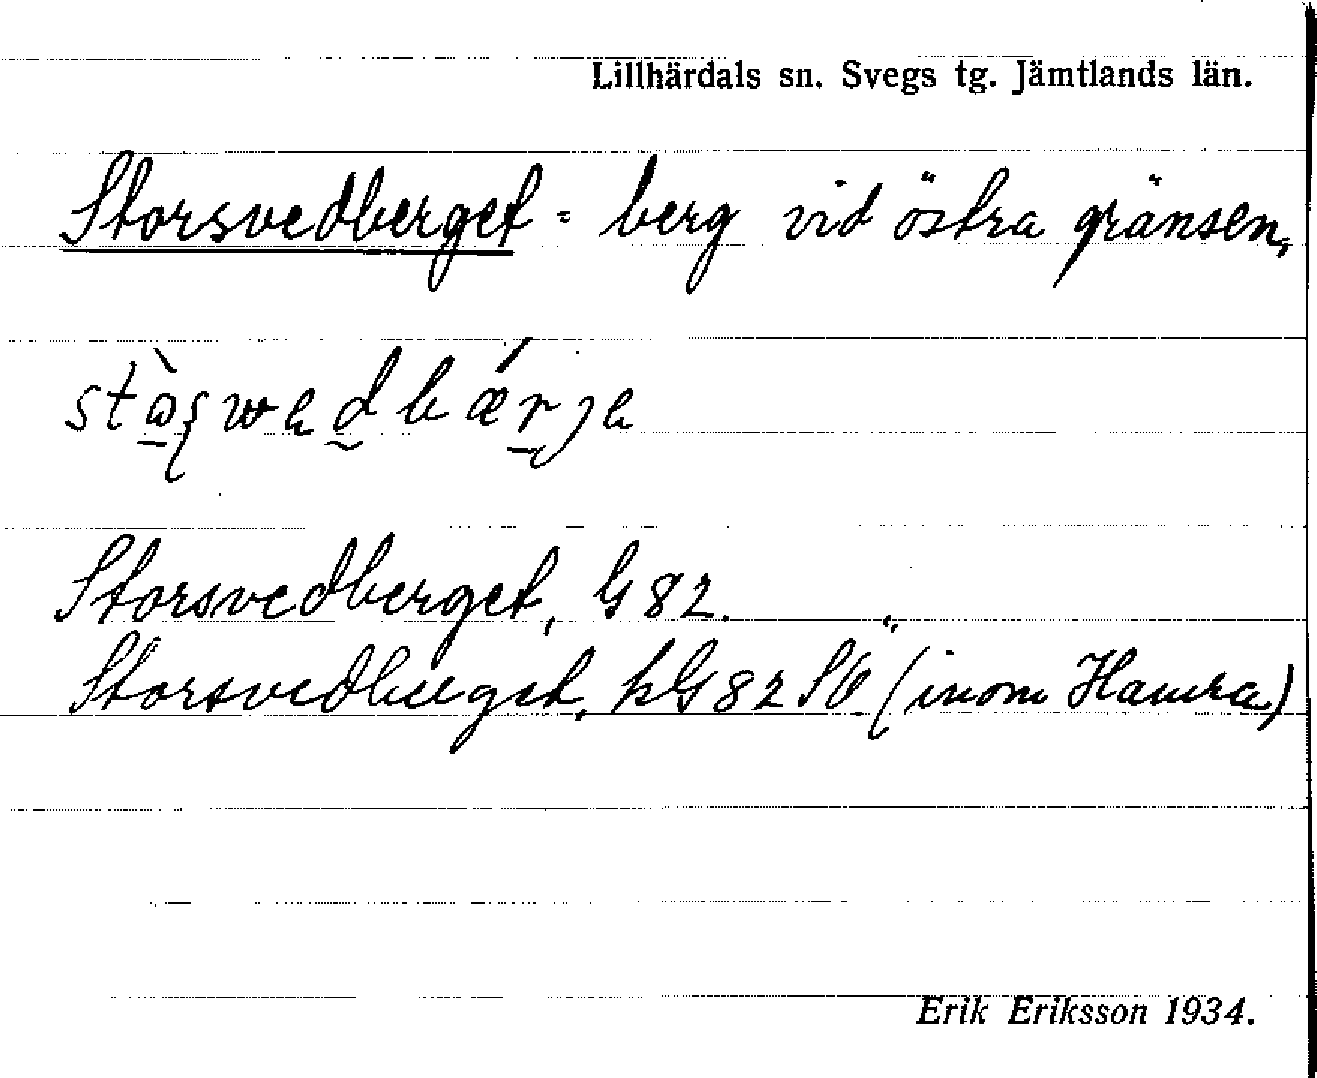 Lillhärdals sn. Svegs tg. Jämtlands län.
Storsvedberget = berg vid östra gränsen.
Storsvedberget, G 82.
Storsvedberget, hG 82 SV (inom Hamra)
Erik Eriksson 1934.